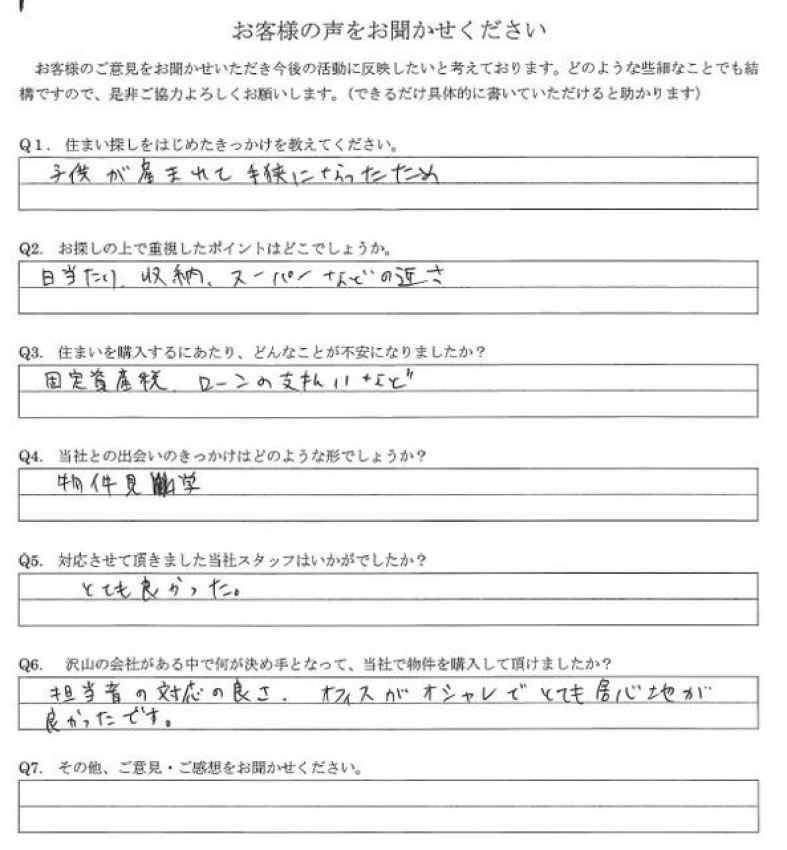 お客様の声をお聞かせください
お客様のご意見をお聞かせいただき今後の活動に反映したいと考えております。どのような些細なことでも結
構ですので、是非ご協力よろしくお願いします。（できるだけ具体的に書いていただけると助かります）
Q1. 住まい探しをはじめたきっかけを教えてください。
子供が産まれて手狭になったため
Q2. お探しの上で重視したポイントはどこでしょうか。
日当たり、収納、スーパーなどの近さ
Q3. 住まいを購入するにあたり、どんなことが不安になりましたか？
固定資産税、ローンの支払いなど
Q4. 当社との出会いのきっかけはどのような形でしょうか？
物件見学
Q5. 対応させて頂きました当社スタッフはいかがでしたか？
とても良かった。
Q6. 沢山の会社がある中で何が決め手となって、当社で物件を購入して頂けましたか？
担当者の対応の良さ、オフィスがオシャレでとても居心地が
良かったです。
Q7. その他、ご意見・ご感想をお聞かせください。